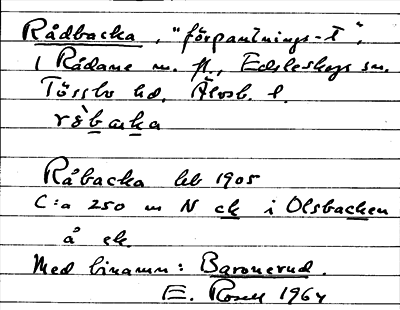 Rådbacka, "förpantnings-t",
i Rådane m. fl., Edsleskogs sn.
Tössbo hd, Älvsb. l.
rå̀backa
Råbacka leb 1905
C:a 250 m N ck i Olsbacken
å ek.
Med binamn: Baronerud.
E. Rosell 1964